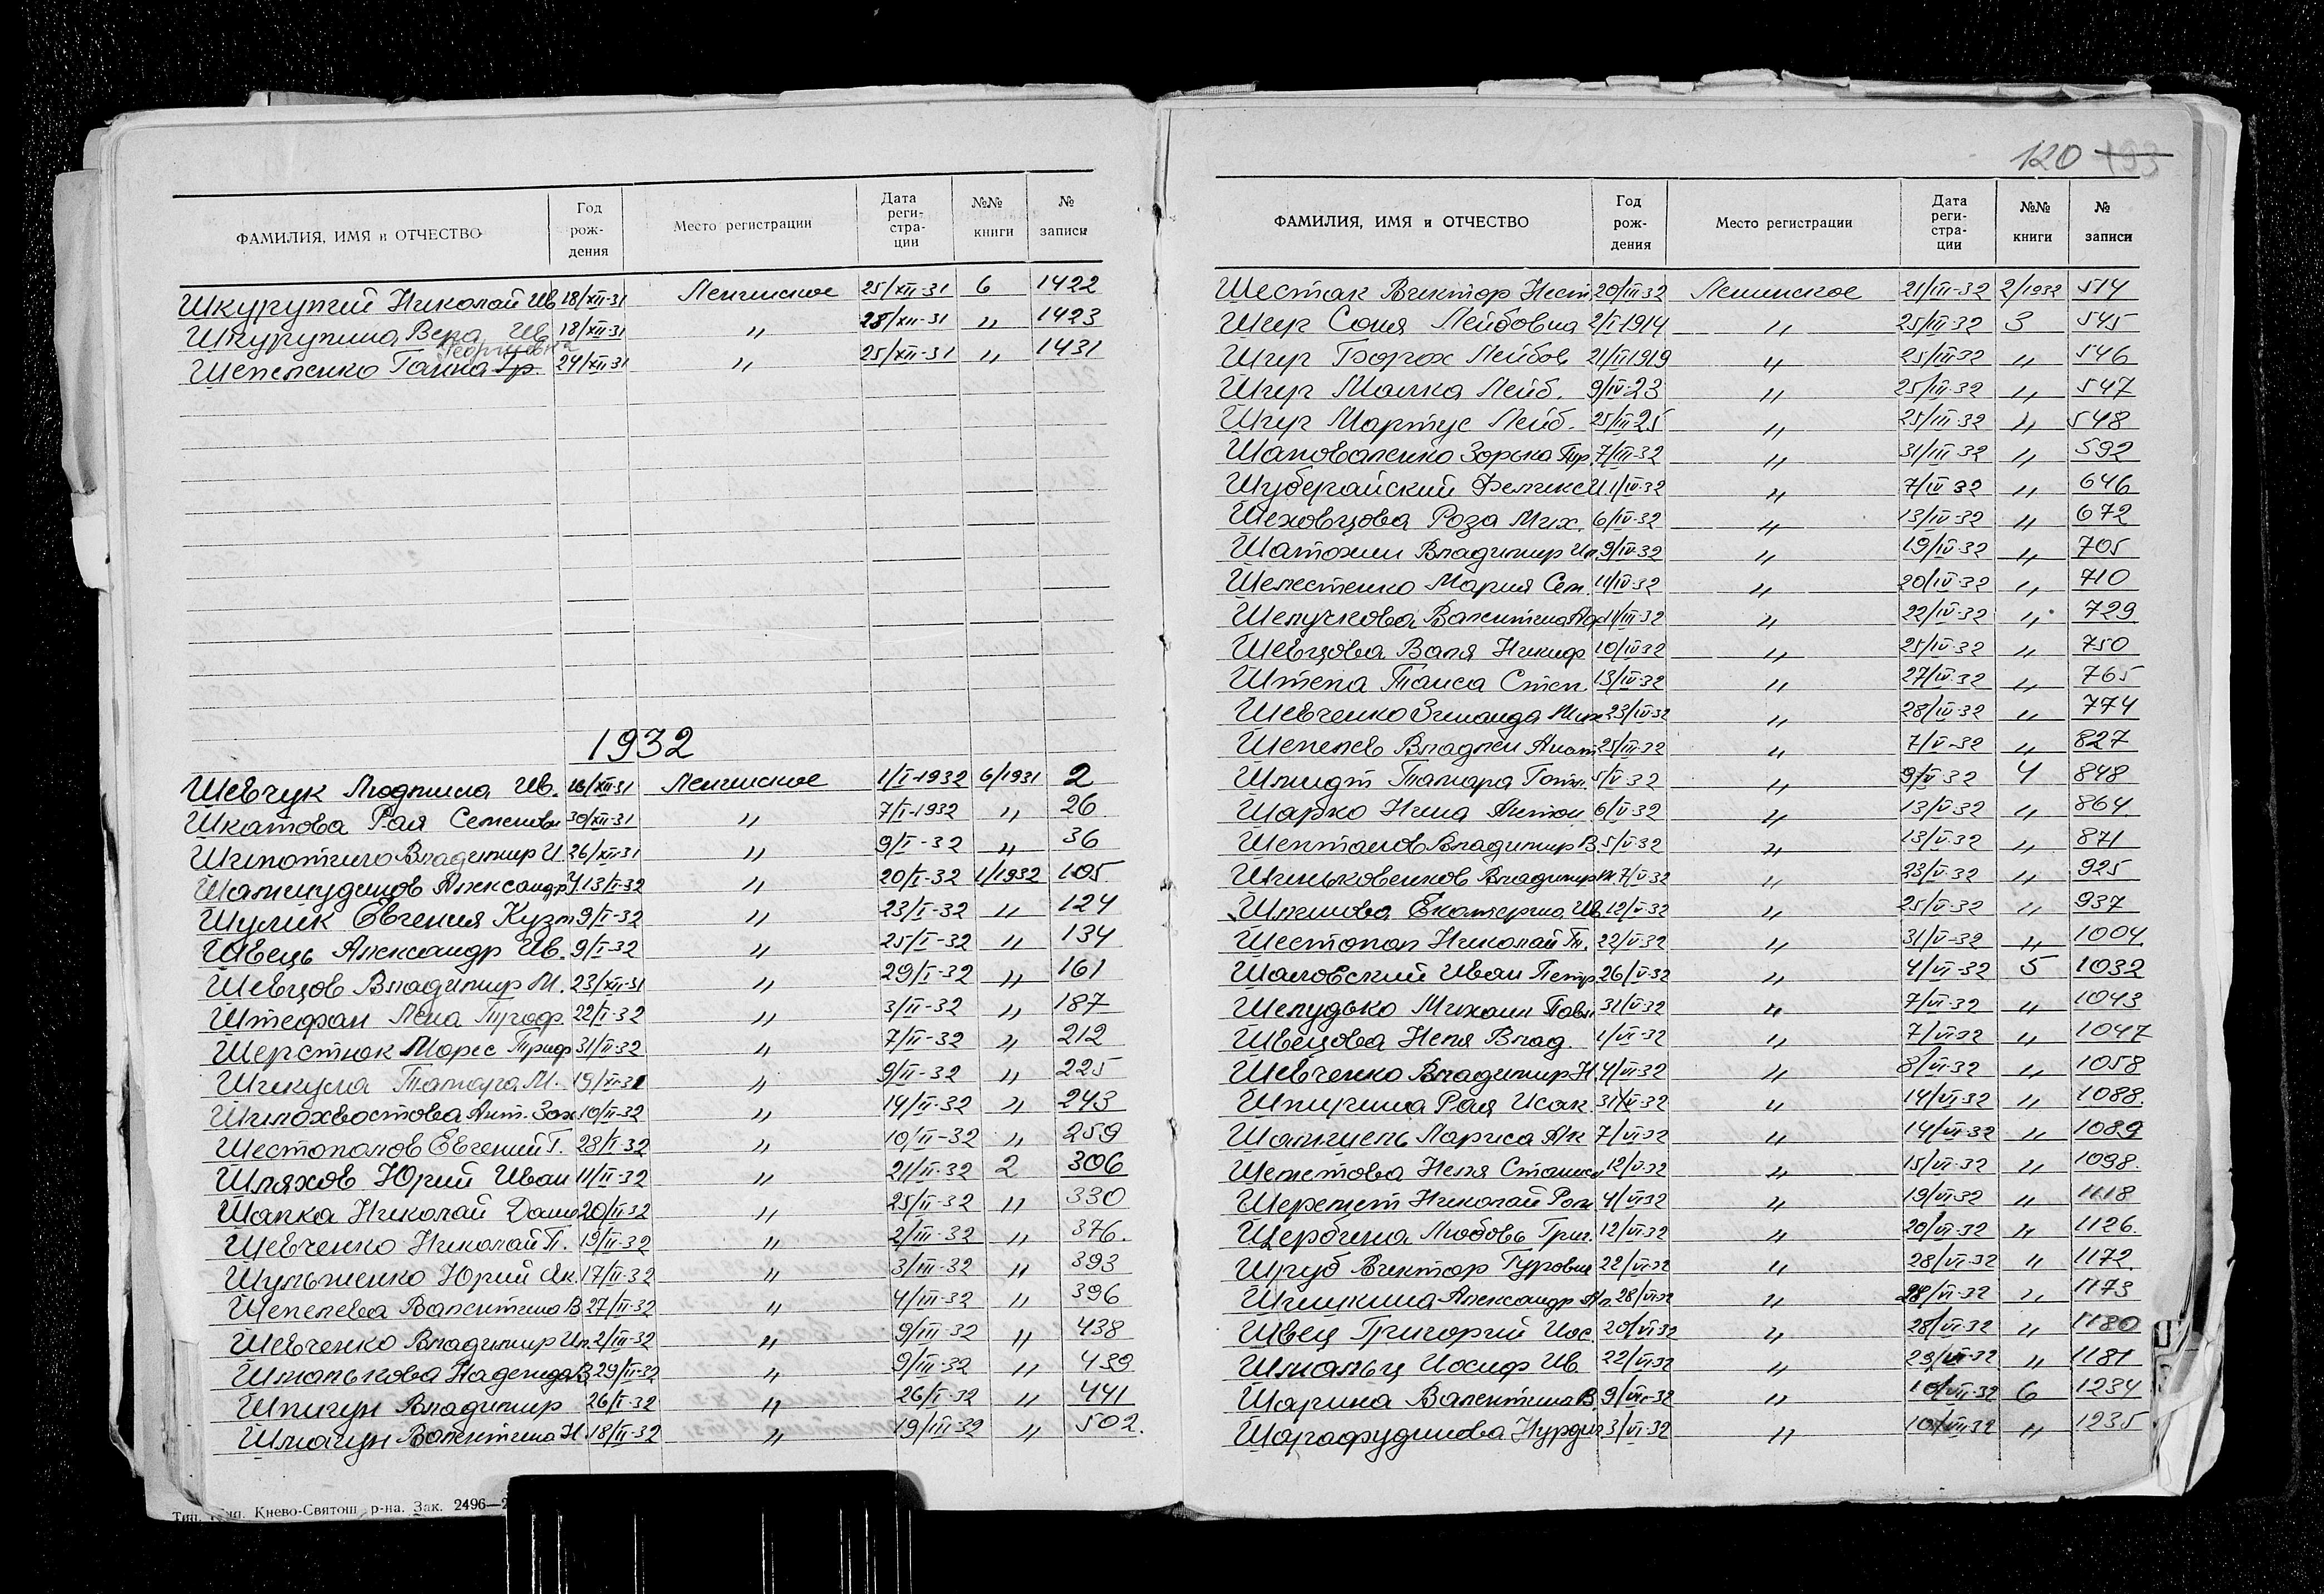 ФАМИЛИЯ, ИМЯ и ОТЧЕСТВО Год рож- дения Место регистрации Дата реги- стра- ции №№ книги № записи
Шкурупий Николай Ив 18/XII-31 Ленинское 25/XII-31 6 1422
Шкурупина Вера Ив 18/XII-31 " 28/XII-31 " 1423
Георгиевна
Шепеленко Галина Гр. 24/XII-31 " 25/XII-31 " 1431
1932
Шевчук Людмила Ив. 16/XII-31 Ленинское 1/I-1932 6/1931 2
Шкатова Рая Семеновн 30/XII-31 " 7/I-1932 " 26
Владимир И. 26/XII-31 " 9/I-32 " 36
Александр 13/I-32 " 20/I-32 1/1932 105
Шулик Евгения Кузм 9/I-32 " 23/I-32 " 124
Швець Александр Ив. 9/I-32 " 25/I-32 " 134
Шевцов Владимир М. 23/XII-31 " 29/I-32 " 161
Штефан Лена 22/I-32 " 3/II-32 " 187
Шерстюк 31/II-32 " 7/II-32 " 212
Шикула Тамара М. 19/XI-31 " 9/II-32 " 225
Шилохвостова Ант. Зах 10/II-32 " 14/II-32 " 243
Шестопалов Евгений Г. 28/I-32 " 10/II-32 " 259
Шляхов Юрий Иван 11/II-32 " 21/II-32 2 306
Шапка Николай Дани 20/II-32 " 25/II-32 " 330
Шевченко Николай П. 19/II-32 " 2/III-32 " 376.
Шульженко Юрий Як. 17/II-32 " 3/III-32 " 393
Шепелева Валентина В 27/II-32 " 4/III-32 " 396
Шевченко Владимир Ил. 2/III-32 " 9/III-32 " 438
Шмалькова Надежда В. 29/II-32 " 9/III-32 " 439
Шпигун Владимир 26/I-32 " 26/I-32 " 441
Шмагун Валентина Н. 18/II-32 " 19/III-32 " 502.
Тип. Киево-Святош р-на. Зак. 2496—2
120 193
ФАМИЛИЯ, ИМЯ и ОТЧЕСТВО Год рож- дения Место регистрации Дата реги- стра- ции №№ книги № записи
Шестак Виктор Нест 20/III-32 Ленинское 21/III-32 2/1932 514
Шур Соня Лейбовна 2/I 1914 " 25/III-32 3 545
Шур Лейбов 21/II 1919 " 25/III 32 " 546
Шур Малка Лейб. 9/IV-23 " 25/III-32 " 547
Шур Лейб. 25/III 25 " 25/III-32 " 548
Шаповаленко Зорька 7/III-32 " 31/III-32 " 592
Феликс И. 1/IV-32 " 7/IV 32 " 646
Шеховцова Роза Мих. 6/IV-32 " 13/IV-32 " 672
Шатохин Владимир Ил. 9/IV-32 " 19/IV-32 " 705
Шелестенко Мария Сем. 11/IV-32 " 20/IV-32 " 710
Валентина 11/III-32 " 22/IV-32 " 729
Шевцова Валя Никиф 10/IV 32 " 25/IV-32 " 750
Штепа Таиса Степ. 13/IV-32 " 27/IV-32 " 765
Шевченко Зинаида Мих 23/IV-32 " 28/IV-32 " 774
Шепелев Владлен Анат 25/III-32 " 7/V-32 " 827
Шмидт Тамара 5/V-32 " 9/V-32 4 848
Шарко Нина Антон 6/V-32 " 13/V-32 " 864
Шепталов Владимир В. 5/V-32 " 13/V-32 " 871
Шиньковенков Владимир М. 7/V-32 " 23/V-32 " 925
Екатерина Ив 12/V-32 " 25/V-32 " 937
Шестопал Николай 22/V-32 " 31/V-32 " 1004
Шаловский Иван Петр 26/V-32 " 4/VI-32 5 1032
Шепудько Михаил Павл 31/V-32 " 7/VI-32 " 1043
Швецова Неля Влад. 1/VI-32 " 7/VI-32 " 1047
Шевченко Владимир Н. 4/VI-32 " 8/VI-32 " 1058
Рая Исак 31/V-32 " 14/VI 32 " 1088.
Лариса Ак 7/VI-32 " 14/VI-32 " 1089
Шеметова Неля Станисл 12/V-32 " 15/VI-32 " 1098.
Шеремет Николай Ром 4/VI 32 " 19/VI 32 " 1118
Щербина Любовь Григ. 12/VI-32 " 20/VI-32 " 1126.
Шруб Виктор Гурович 22/VI-32 " 28/VI-32 " 1172.
Шишкина Александр Ал. 28/VI-32 " 28/VI-32 " 1173
Швец Григорий Иос. 20/VI 32 " 28/VI-32 " 1180
Шмальц Иосиф Ив 22/VI-32 " 29/VI-32 " 1181
Шарина Валентина В. 9/VII-32 " 10/VII-32 6 1234
Шарафудинова 3/VI-32 " 10/VII 32 " 1235